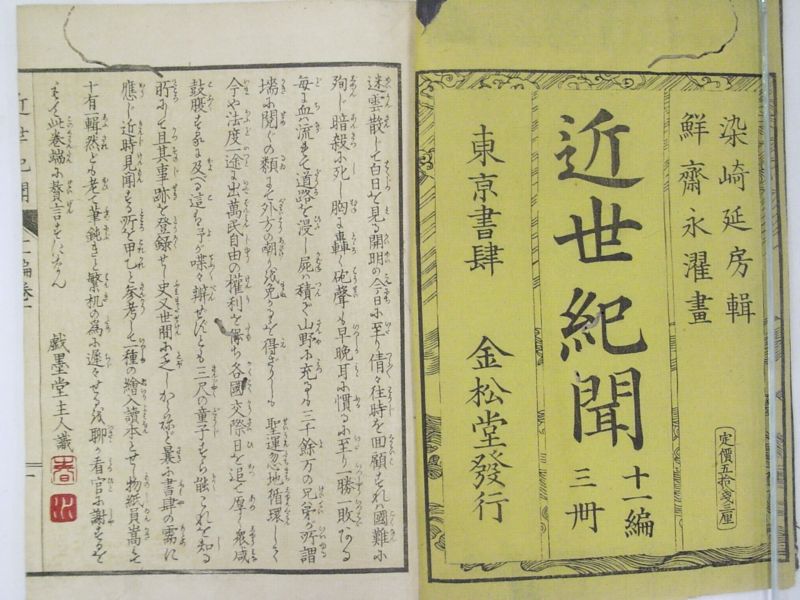 染崎延房輯
鮮齋永濯畫
近世紀聞
十一編
三冊
定價五拾戔三厘
東京書肆
金松堂發行
迷雲散じて白日を見る開明の今日に至り倩々往時を回顧すれバ國難に
殉じ暗殺に死し胸に轟く砲聲も早晩耳に慣るゝに至り一勝一敗
毎に血流れて道路を浸し屍ハ積で山野に充るも三千餘万の兄弟が所謂
墻に鬩ぐの類にて外方の嘲りを免るゝを得ざりしも 聖運忽地循環して
今や法度一途に出萬民自由の權利を保ち各國交際日を追て厚く衆咸
鼓腹する
這ハ予が喋々辯せずとも三尺の童子すら能くこれを知る
所にて且其事跡を登録せし史又世間に乏しからねど曩に書肆の需に
應じ近時見聞する所の甲乙を参考して一種の繪入讀本とせし物紙員嵩みて
十有一輯然ども老て筆鈍きと繁机の為に遅々せるを聊か看官に謝するを
もて此巻端に贅言すること
戯墨堂主人識
春水
近世紀聞
十一編巻一